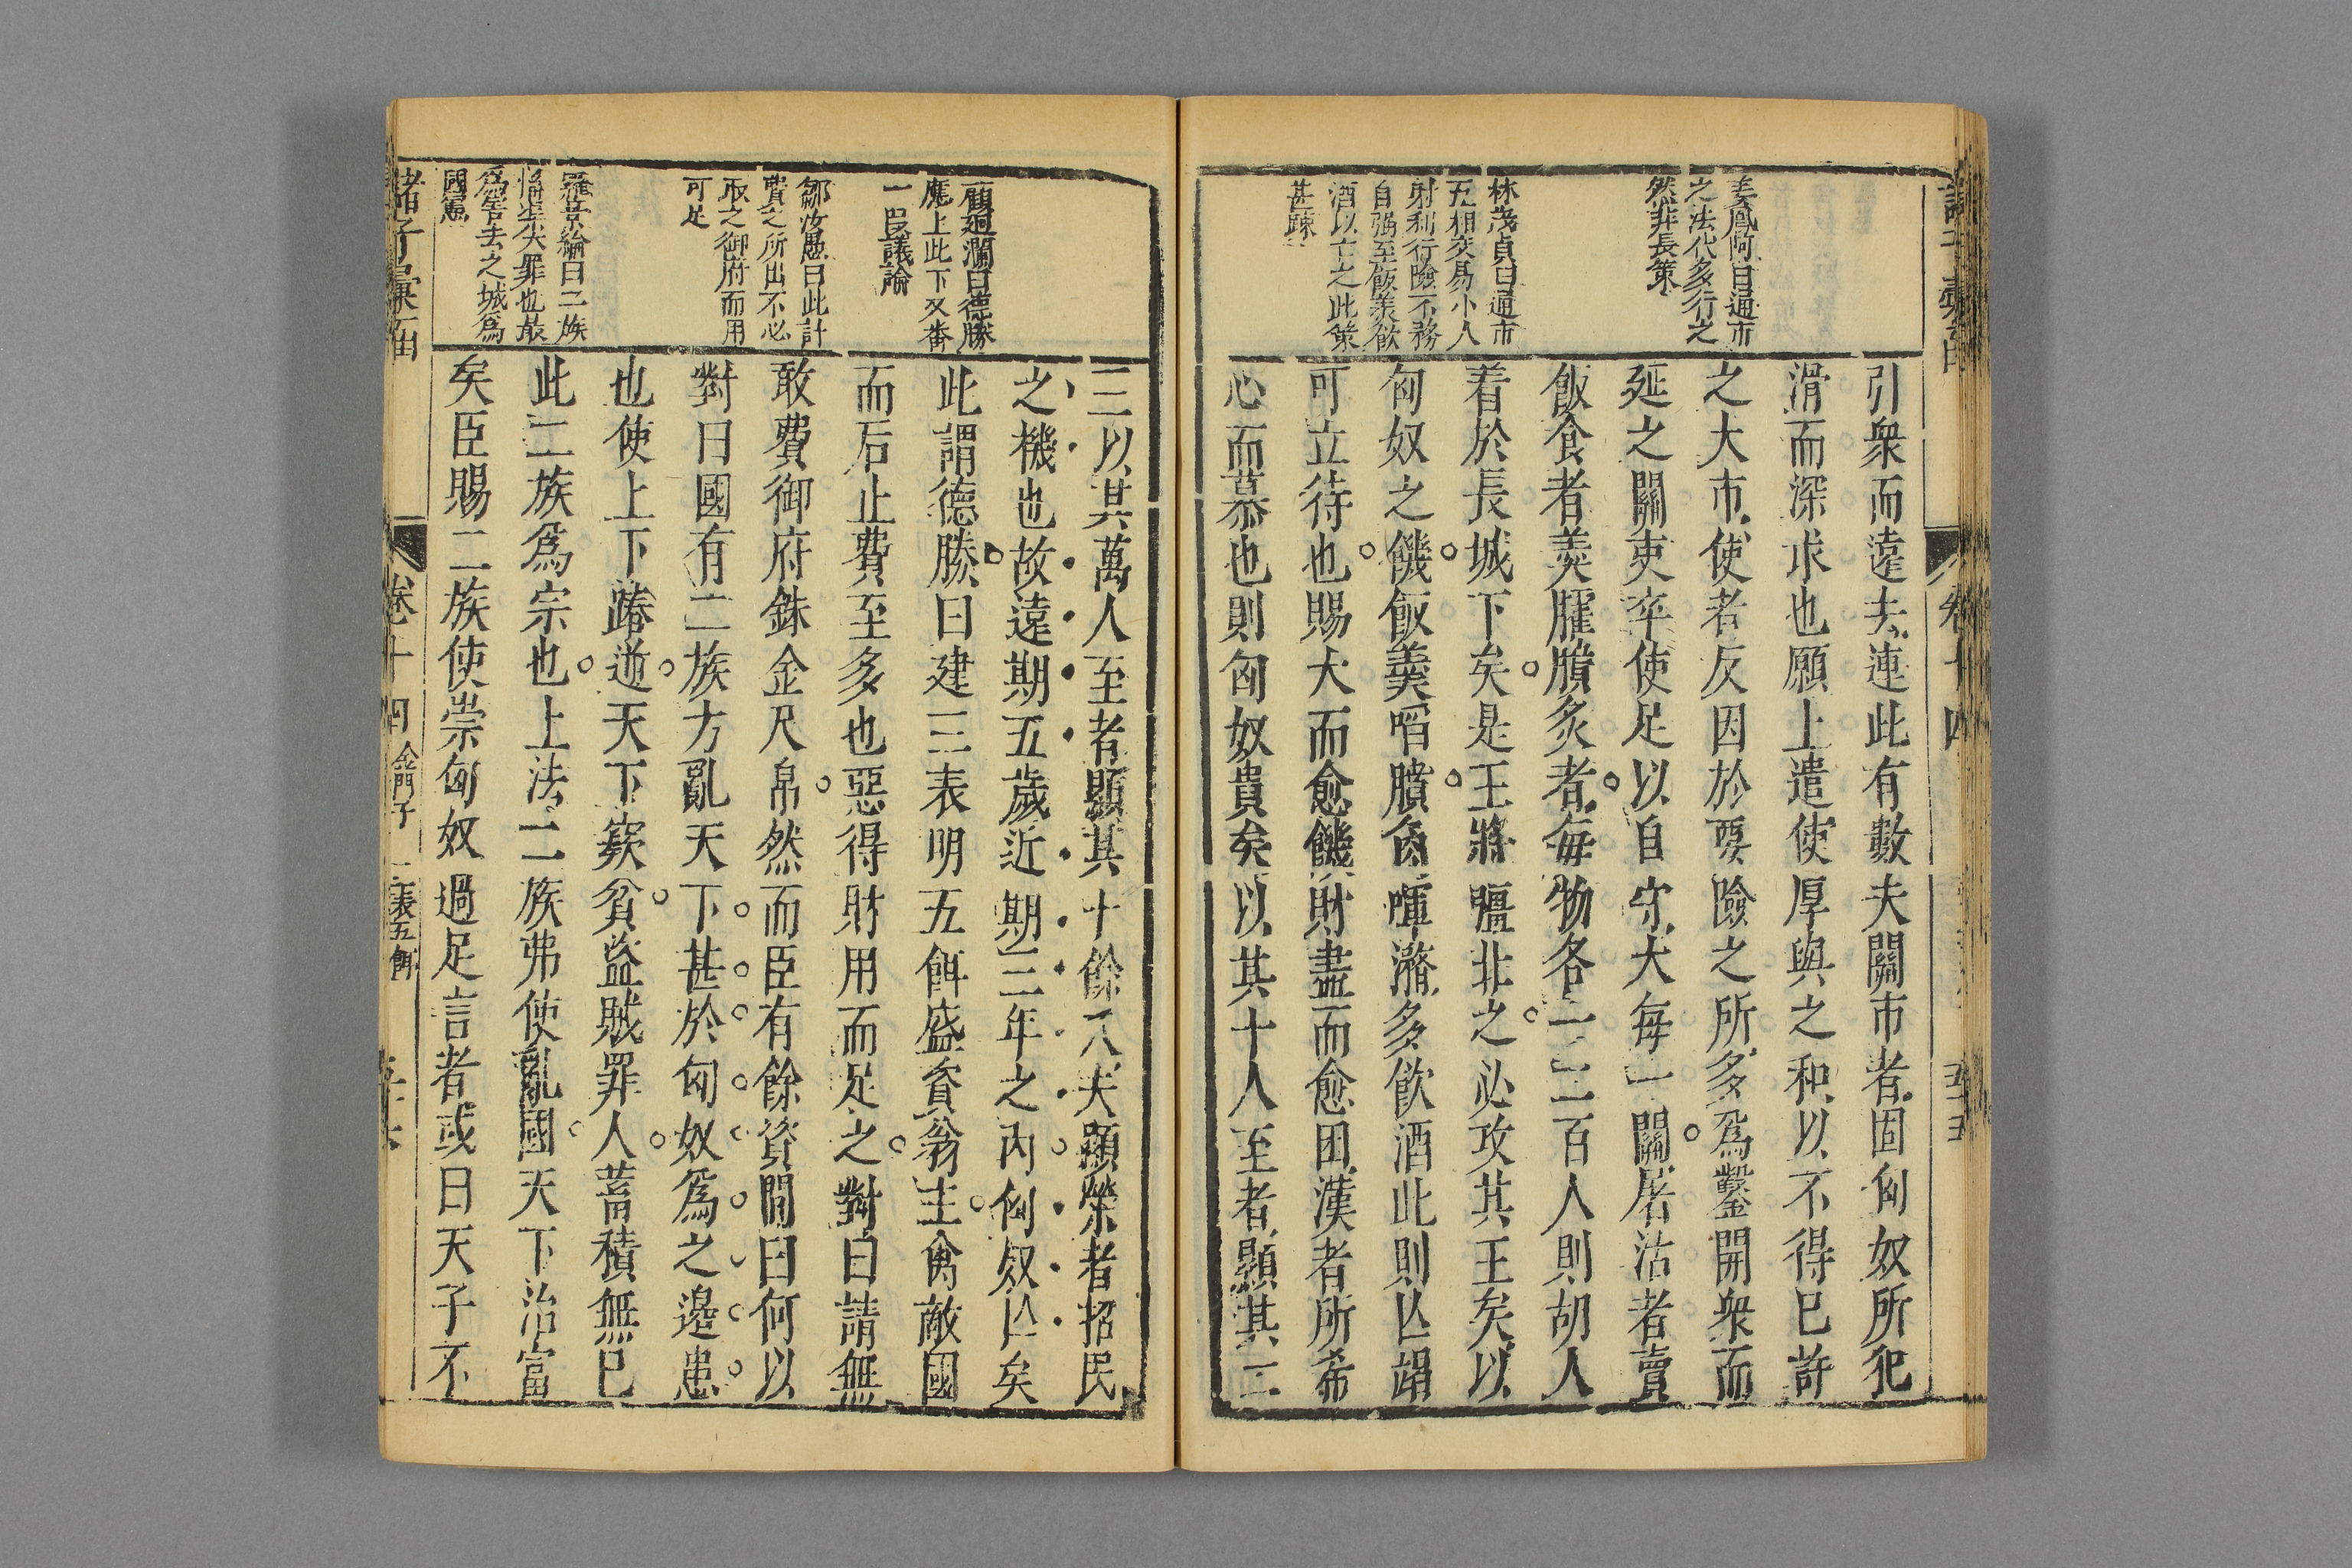 姜鳳阿曰通市
之法代多行之
然非長策
林茂貞曰通市
互相交易小人
射利行險不務
自強至飯羮飲
酒以亡之此策
甚踈
引衆而遠去連此有數夫關市者固匈奴所犯
滑而深求也願上遣使厚與之和以不得已許
之大市使者反因於要險之所多爲鑿開衆而
延之關吏卒使足以自守大每一關屠沽者賣
飯食者羮臛膹炙者每物各一二百人則胡人
着於長城下矣是王將彊北之必攻其王矣以
匈奴之饑飯羮啗膹肉嘽瀋多飲酒此則亾竭
可立待也賜大而愈饑財盡而愈困漢者所希
心而慕也則匈奴貴矣以其十人至者顯其二
顧迴瀾曰德勝
應上此下又畨
一叚議論
鄒汝愚曰此計
費之所出不必
取之御府而用
可足
羅景綸曰二族
爲害去之城爲
國慮
三以其萬人至者顯其十餘人夫顯榮者招民
之機也故遠期五歲近期三年之內匈奴亾矣
此謂德勝曰建三表明五餌盛資翁主禽敵國
而后止費至多也惡得財用而足之對曰請無
敢費御府銖金尺帛然而臣有餘資問曰何以
對曰國有二族方亂天下甚於匈奴爲之邊患
也使上下踳逆天下窾貧盜賊罪人蓄積無已
此二族爲宗也上法二族弗使亂國天下治富
矣臣賜二族使崇匈奴過足言者或曰天子不
卷十四
三表五餌